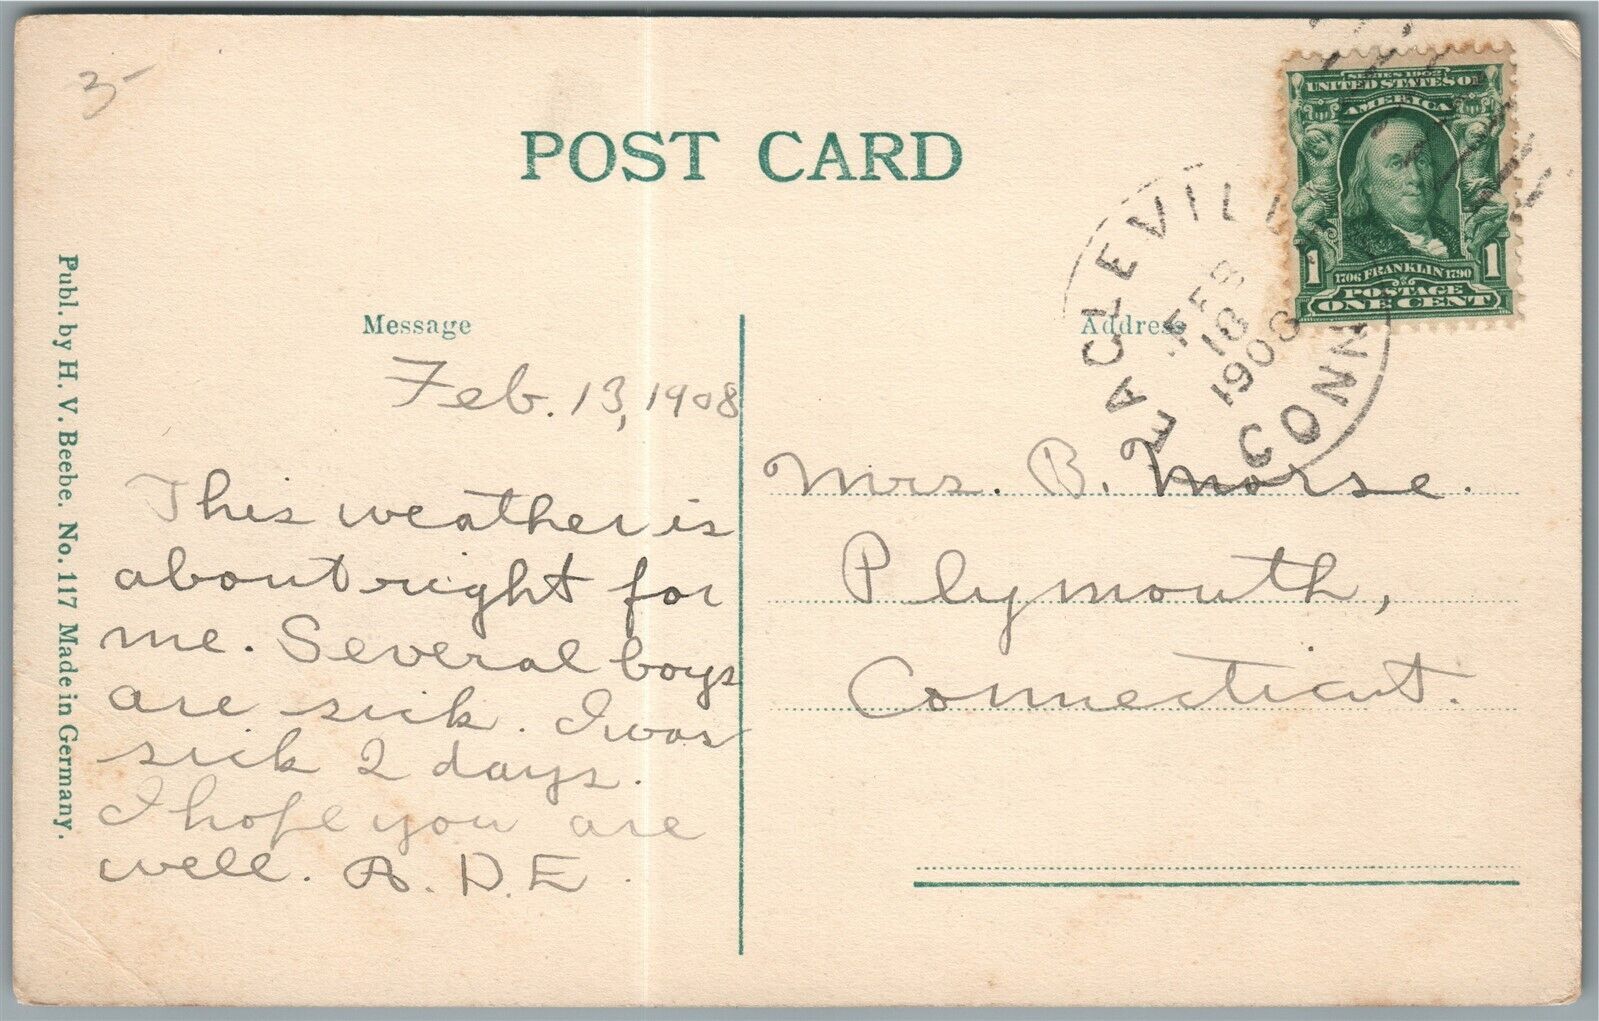 3-
POST CARD
SERIES 1902
UNITED STATES OF
AMERICA
1 1
1706 FRANKLIN 1790
POSTAGE
ONE CENT
EAGLEVILL
FEB
1908
CONN
Message
Address
Feb. 13, 1908
This weather is
about right for
me. Several boys
are sick. I was
sick 2 days.
I hope you are
well. A. D. E.
Mrs. B. Morse.
Plymouth,
Connecticut.
Publ. by H. V. Beebe. No. 117 Made in Germany.